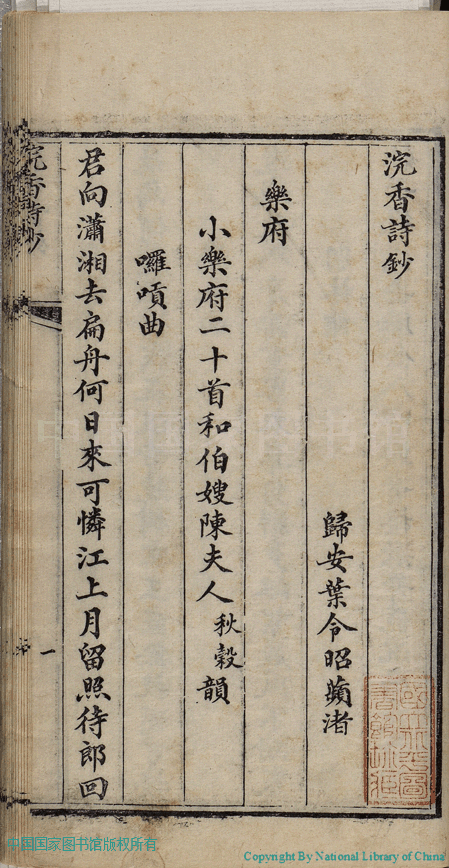 浣香詩鈔
歸安葉令昭蘋渚
樂府
小樂府二十首和伯嫂陳夫人秋穀韻
囉嗊曲
君向瀟湘去扁舟何日來可憐江上月留照待郎回
浣香詩鈔
一
中国国家图书馆
中国国家图书馆版权所有
Copyright By National Library of China